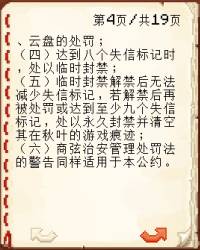 第4页/共19页
、云盘的处罚；
（四）达到八个失信标记时
，处以临时封禁；
（五）临时封禁解禁后无法
减少失信标记，若解禁后再
被处罚或达到至少九个失信
标记，处以永久封禁并清空
其在秋叶的游戏痕迹；
（六）商弦治安管理处罚法
的警告同样适用于本公约。